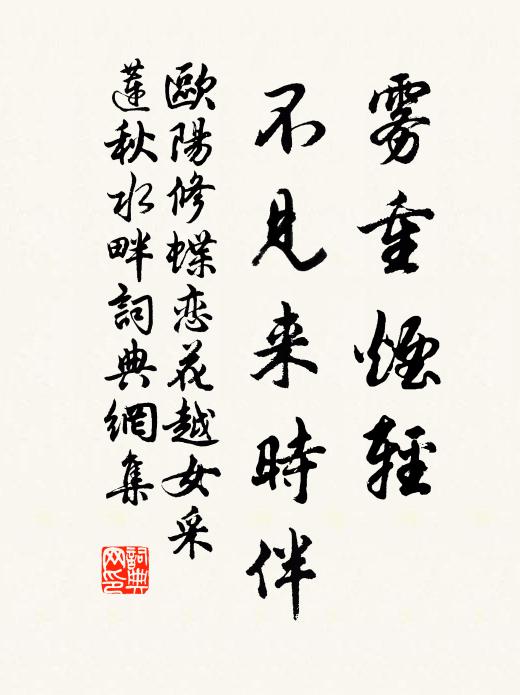 雾重煙輕
不見来時伴
歐陽修蝶恋花越女采
蓮秋水畔詞典網集
詞典网印